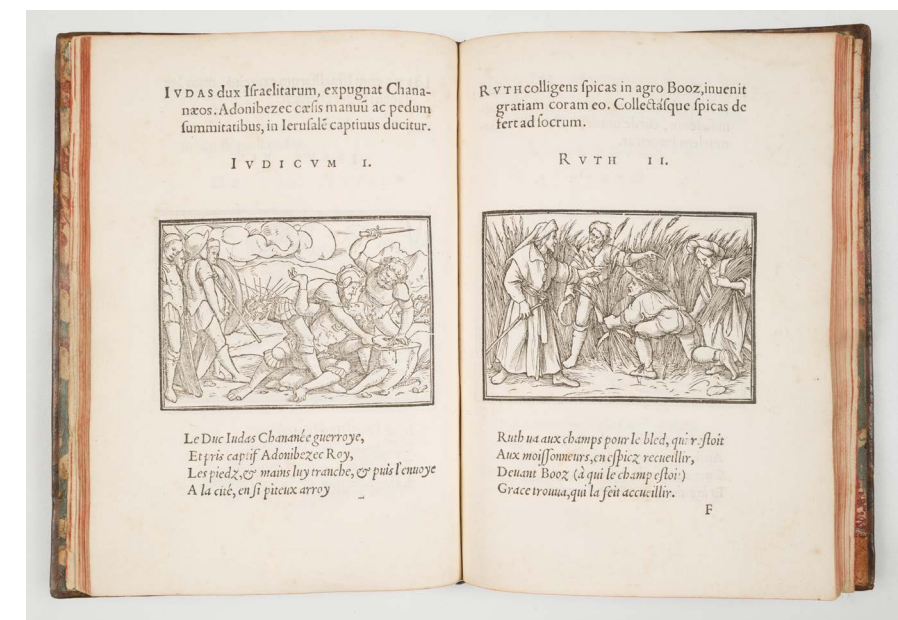 IVDAS dux Iſraelitarum, expugnat Chana-
næos. Adonibezec cæſis manuū ac pedum
ſummitatibus, in Ieruſalē captiuus ducitur.
IVDICVM I.
Le Duc Iudas Chananée guerroye,
Et pris captif Adonibezec Roy,
Les piedz, & mains luy tranche, & puis l'enuoye
A la cité, en ſi piteux arroy
RVTH colligens ſpicas in agro Booz, inuenit
gratiam coram eo. Collectáſque ſpicas de
fert ad ſocrum.
RVTH II.
Ruth ua aux champs pour le bled, qui reſtoit
Aux moiſſonneurs, en eſpicz recueillir,
Deuant Booz (à qui le champ eſtoit)
Grace trouua, qui la feit accueillir.
F